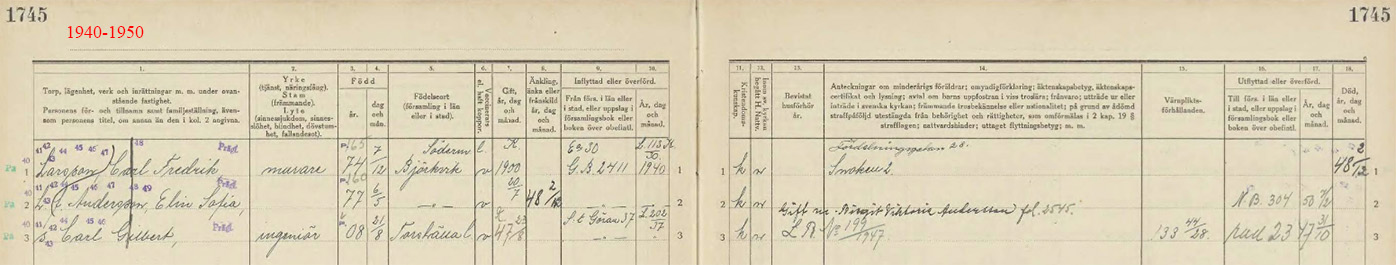 1745
1745
1940-1950
1. 2. 3. 4. 5. 6. 7. 8. 9. 10.
Torp, lägenhet, verk och inrättningar m. m. under ovanstående fastighet.
Personens för- och tillnamn samt familjeställning, även som personens titel, om annan än den i kol. 2 angivna.
Yrke
(tjänst, näringsfång).
Stam
(främmande).
Lyte
(sinnessjukdom, sinnesslöhet, blindhet, dövstumhet, fallandesot).
Född
år.
dag och mån.
Födelseort
(församling i län eller i stad).
Gift, år, dag och månad.
Änkling, änka eller frånskild år, dag och månad.
Inflyttad eller överförd.
Från förs. i län eller i stad, eller uppslag i församlingsbok eller boken över obefintl.
År, dag, månad.
11. 12. 13. 14. 15. 16. 17. 18.
Kristendomskunskap.
Bevistat husförhör år.
Anteckningar om minderårigs föräldrar; omyndigförklaring; äktenskapsbetyg, äktenskapscertifikat och lysning; avtal om barns uppfostran i viss troslära; frånvaro; utträde ur eller inträde i svenska kyrkan; främmande trosbekännelse eller nationalitet; på grund av ådömd straffpåföljd utestängda från behörighet och rättigheter, som omförmälas i 2 kap. 19 § strafflagen; nattvardshinder; uttaget flyttningsbetyg; m. m.
Värnpliktsförhållanden.
Utflyttad eller överförd.
Till förs. i län eller i stad, eller uppslag i församlingsbok eller boken över obefintl.
År, dag, månad.
Död, år, dag och månad.
41 42 43 44 45 46 47 48
Prägl.
40
1 Larsson, Carl Fredrik murare 74 7/12 Björkvik v 1900 G.B. 2411 1940 1
1 k v Smoken 2. 48 2/12 1
Prägl.
40
2 Andersson, Elin Sofia, 77 6/5 v 48 2/12 2
2 k v N.B. 304 50 2
Gift m. Birgit Viktoria Andersson fol. 2545.
Prägl.
40
3 s. Carl Gilbert, ingeniör 08 21/8 Torshälla l. v 47 23/8 S:t Göran 37 3
3 k v L.R. No 199/1947. 133 44/28. rad 23 47 31/10 3